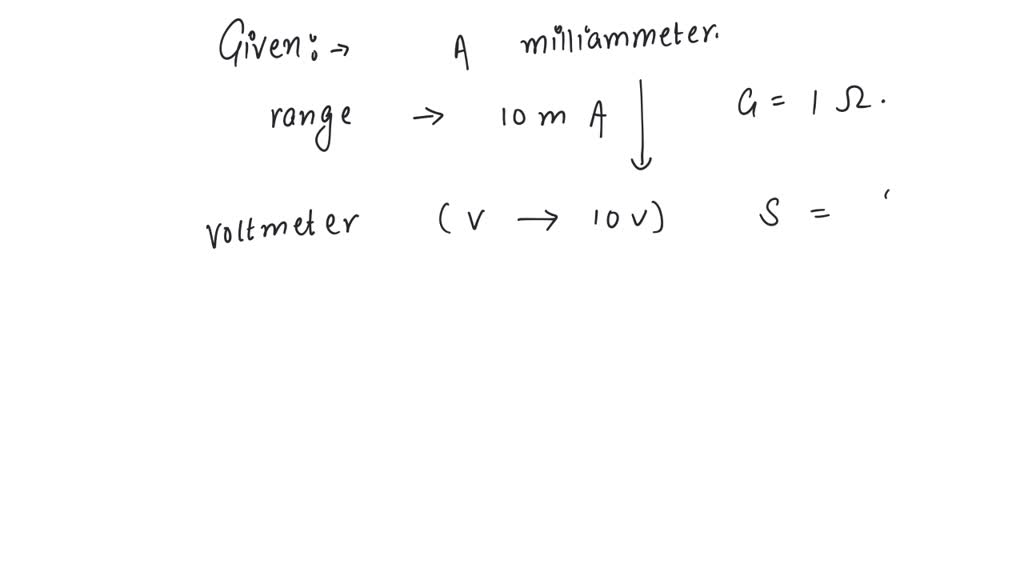 Given: → A milliammeter.
range → 10 m A ↓ G = 1 Ω.
voltmeter (v → 10 v) S =